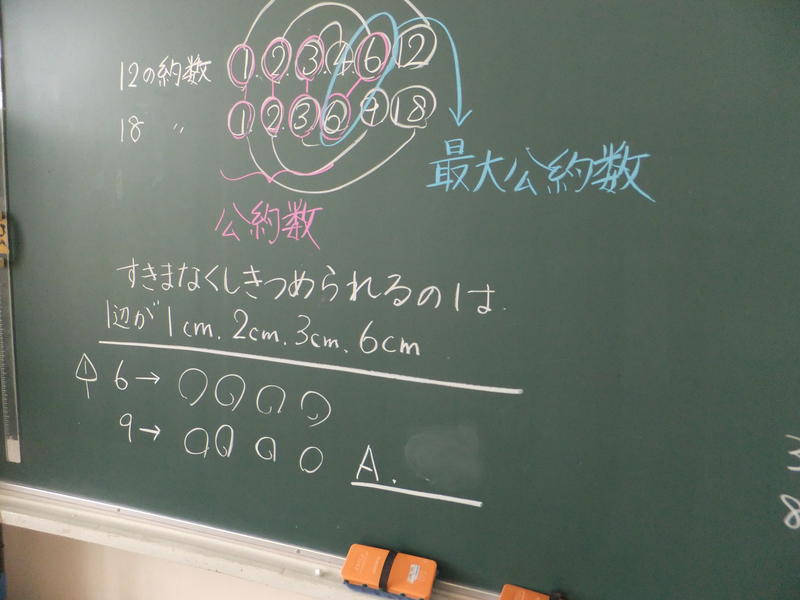 12の約数 1. 2. 3. 4. 6. 12
18 〃 1. 2. 3. 6. 9. 18
最大公約数
公約数
すきまなくしきつめられるのは
1辺が1cm. 2cm. 3cm. 6cm
① 6→ ○ ○ ○ ○
9→ ○ ○ ○ ○
A.